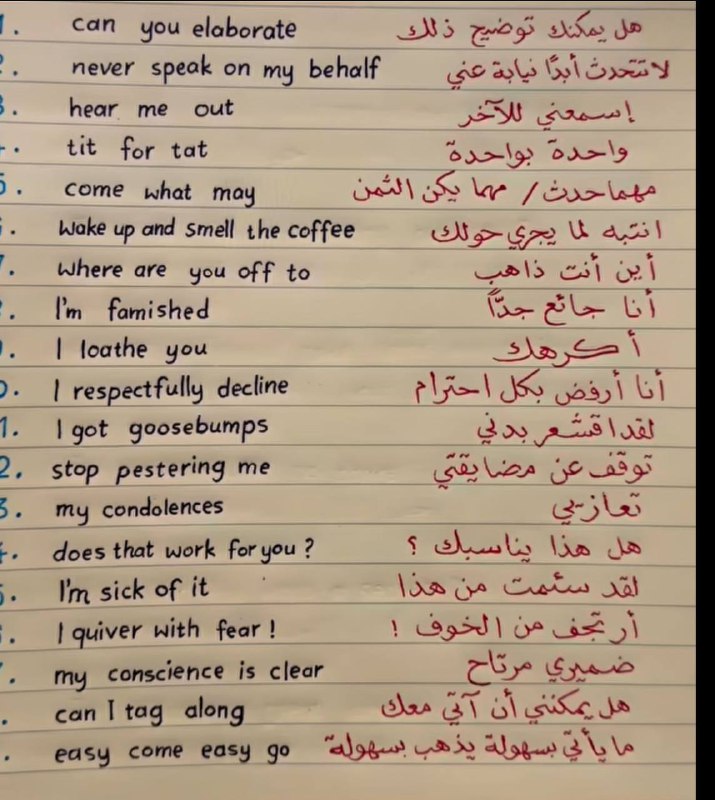 1. can you elaborate هل يمكنك توضيح ذلك
2. never speak on my behalf لا تتحدث أبدًا نيابة عني
3. hear me out إسمعني للآخر
. tit for tat واحدة بواحدة
5. come what may مهما حدث / مهما يكن الثمن
. Wake up and smell the coffee انتبه لما يجري حولك
7. where are you off to أين أنت ذاهب
. I'm famished أنا جائع جدًّا
. I loathe you أكرهك
0. I respectfully decline أنا أرفض بكل احترام
1. I got goosebumps لقد اقشعر بدني
2. stop pestering me توقف عن مضايقتي
3. my condolences تعازيي
. does that work for you ? هل هذا يناسبك ؟
5. I'm sick of it لقد سئمت من هذا
. I quiver with fear ! أرتجف من الخوف !
. my conscience is clear ضميري مرتاح
. can I tag along هل يمكنني أن آتي معك
. easy come easy go ما يأتي بسهولة يذهب بسهولة